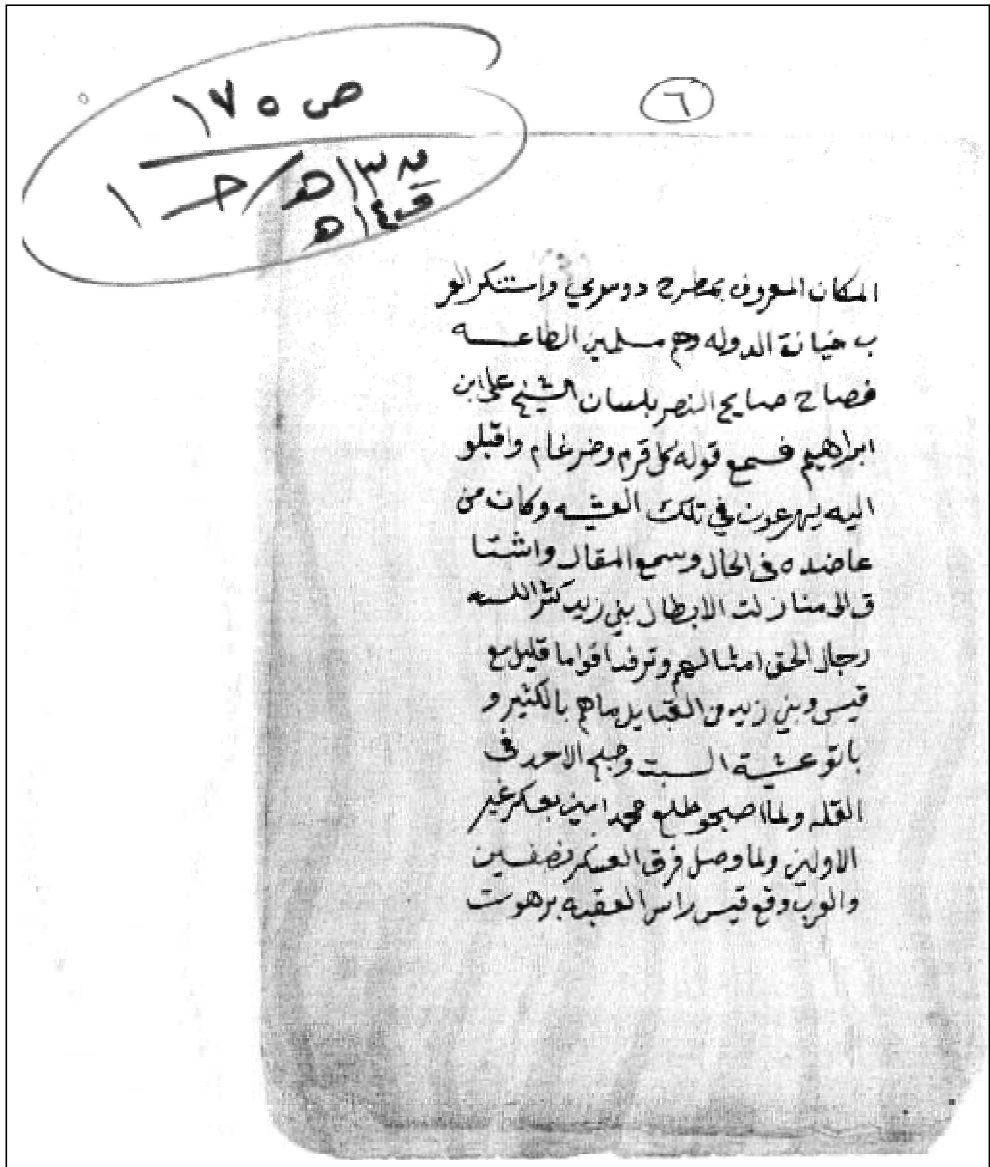 ص ١٧٥
٦
المكان المعروف بمطرح دوسري واستنكر العر
ب خيانة الدوله وهم مسلمين الطاعـــه
فصاح صايح النصر بلسان الشيخ علي ابن
ابراهيم فسمع قوله كل قرم وضرغام واقبلو
اليه يهرعون في تلك العشيه وكان من
عاضده في الحال وسمع المقال واشتا
ق الى منازلت الابطال بني زيد كثر الله
رجال الحق امثالهم وترفد اقواما قليل مع
قيس وبني زيد من القبايل ماهم بالكثير و
باتو عشية السبت وصبح الاحد في
القله ولما اصبحو طلع محمد امين بعسكر غير
الاولين ولما وصل فرق العسكر نصفين
والعرب وقع قيس راس العقبه برهوت